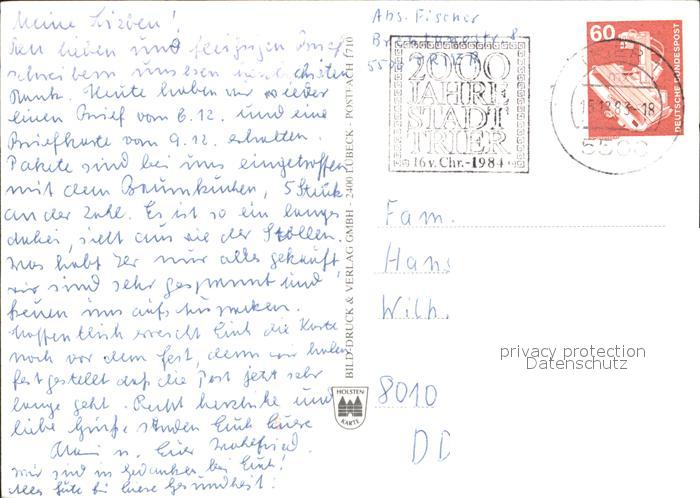 Meine Lieben!
Den lieben und fleißigen Brief-
schreibern unseren herzlichsten
Dank. Heute haben wir wieder
einen Brief vom 6.12. und eine
Briefkarte vom 9.12. erhalten.
Pakete sind bei uns eingetroffen
mit dem Baumkuchen, 5 Stück
an der Zahl. Es ist so ein langes
dabei, sieht aus wie der Stollen.
Was habt Ihr nur alles gekauft
wir sind sehr gespannt und
freuen uns aufs Auspacken.
Hoffentlich erreicht Euch die Karte
noch vor dem Fest, denn wir haben
festgestellt daß die Post jetzt sehr
lange geht. Recht herzliche und
liebe Grüße senden Euch Eure
u. Euer
Wir sind in Gedanken bei Euch!
Alles Gute für Eure Gesundheit!
BILD-DRUCK & VERLAG GMBH - 2400 LÜBECK - POSTFACH 1710
HOLSTEN
KARTE
Abs. Fischer
5500 TRIER
2000
JAHRE
STADT
TRIER
16 v. Chr. - 1984
60
DEUTSCHE BUNDESPOST
15.12.83-18
5500
Fam.
Hans
Wilh.
8010
DD
privacy protection
Datenschutz